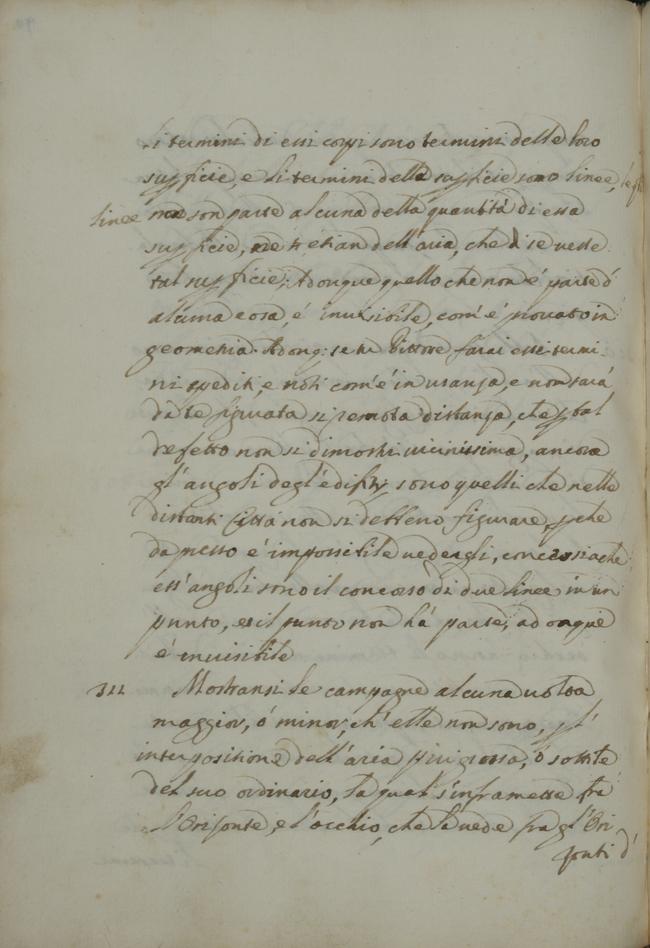 li termini di essi corpi sono termini delle loro
superficie, e li termini della superficie sono linee,
linee non son parte alcuna della quantità di essa
superficie, ne etian dell'aria, che di se veste
tal superficie; Adonque quello che non é parte d'
alcuna cosa, é invisibile, com'é provato in
geometria. Adonq; se tu Pittore farai essi termi
ni spediti, e noti com'é in usanza, e non sará
da te figurata si remota distanza, che p tal
defetto non si dimostri vicinissima, ancora
gl'angoli degl'edifitij sono quelli che nelle
distanti Cittá non si debbeno figurare, pche
da presso é impossibile vedergli, conciosiache
ess'angoli sono il concorso di due linee in un
punto, et il punto non há parte; adonque
é invisibile
322 Mostransi le campagne alcuna volta
maggior, ó minor, ch'elle non sono, pl'
interpositione dell'aria piú grossa, ó sottile
del suo ordinario, la qual s'inframette trá
l'Orizonte, e l'occhio, che la vede fra gl'Ori
zonti d'